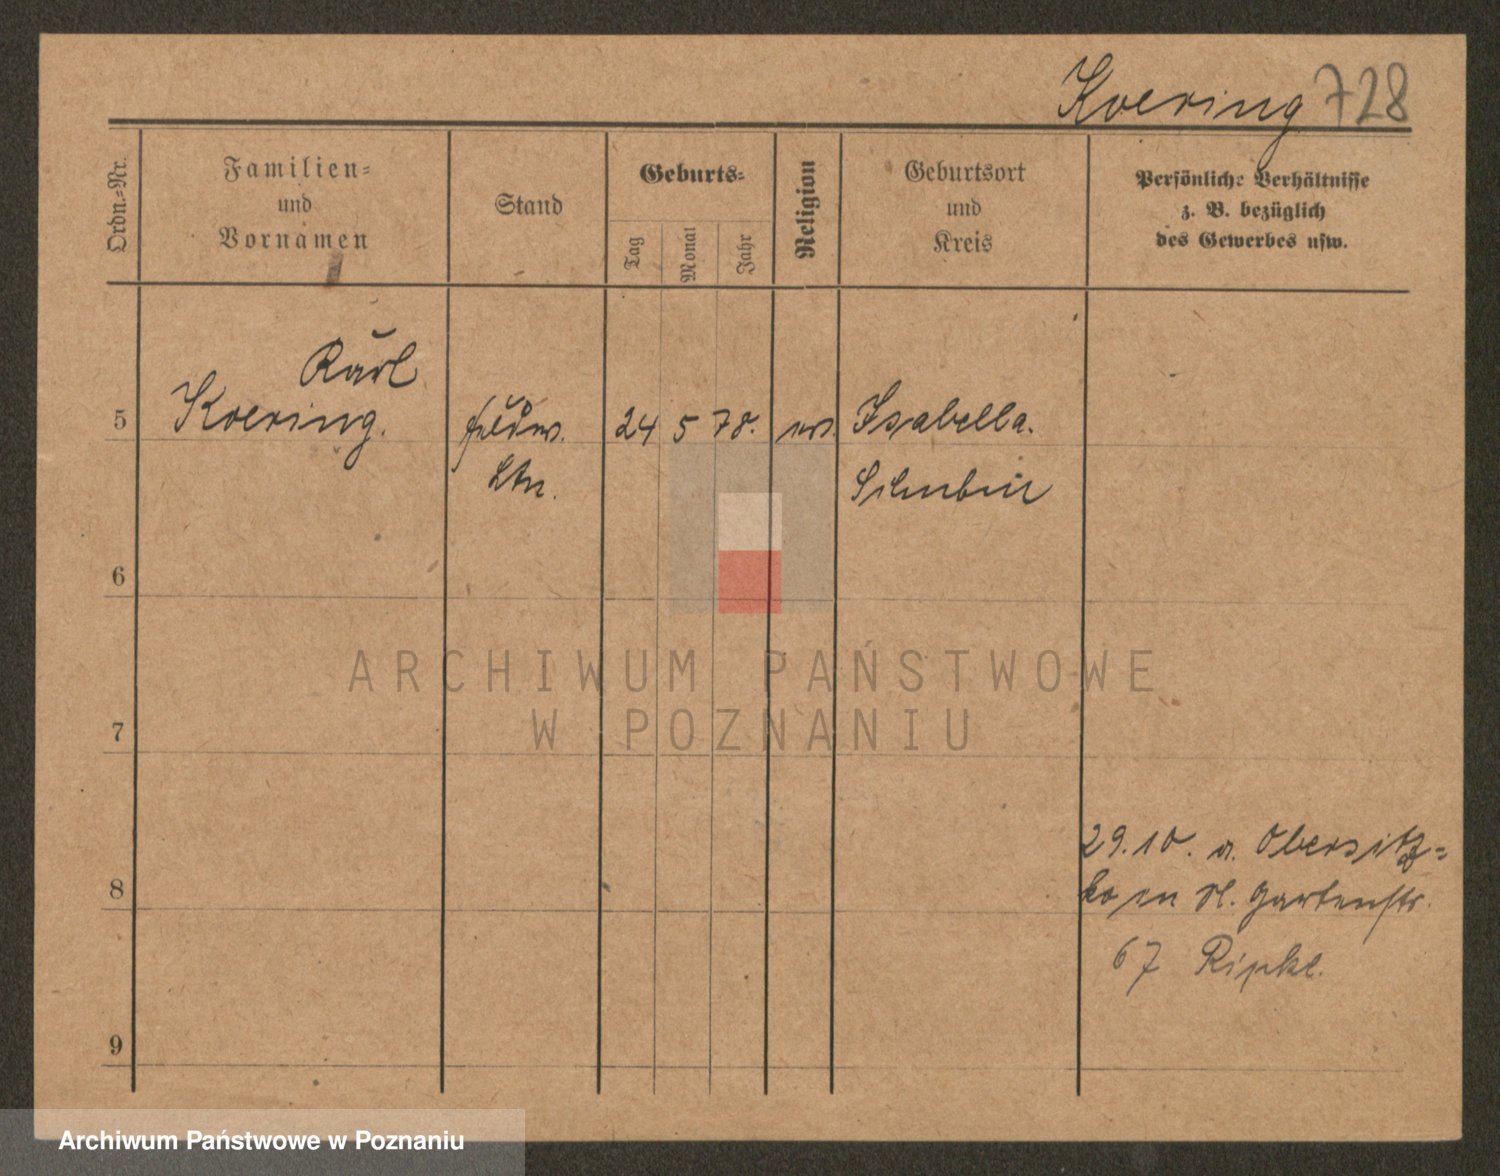 Koering 728
Ordn.-Nr.
Familien-
und
Vornamen
Stand
Geburts-
Tag
Monat
Jahr
Religion
Geburtsort
und
Kreis
Persönliche Verhältnisse
z. B. bezüglich
des Gewerbes usw.
Karl
5 Koering. 24 5 78. Isabella.
Ltn. Schubin
6
ARCHIWUM PAŃSTWOWE
W POZNANIU
7
29.10. a. Obersitz=
8 ko in Gartenstr.
67
9
Archiwum Państwowe w Poznaniu